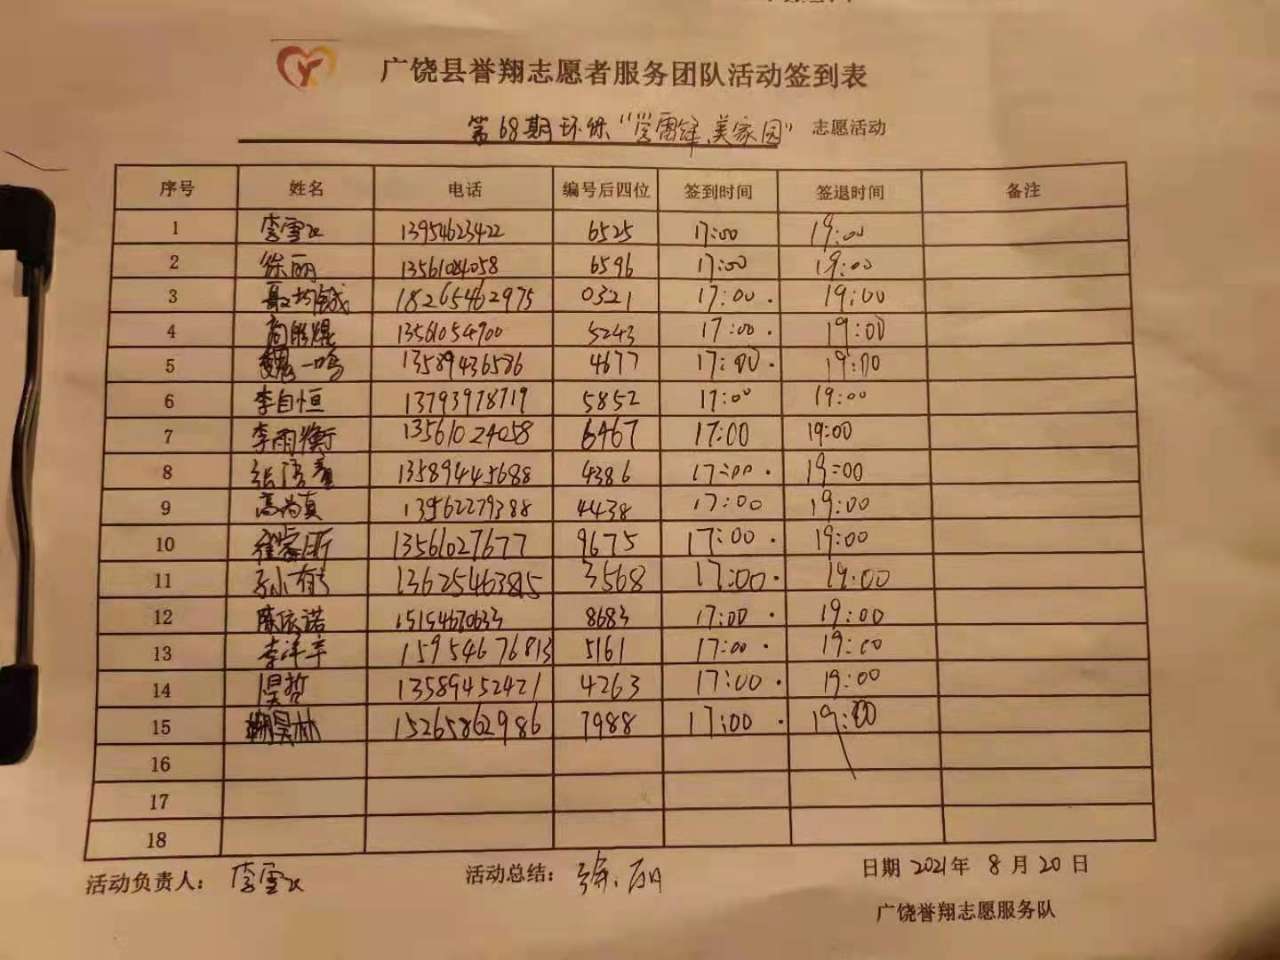 广饶县誉翔志愿者服务团队活动签到表
第68期环保“学雷锋、美家园”志愿活动
序号 姓名 电话 编号后四位 签到时间 签退时间 备注
1 李雪 13954623422 6525 17:00 19:00
2 徐丽 13561084058 6596 17:00 19:00
3 18265462975 0321 17:00 19:00
4 13561054900 5243 17:00 19:00
5 魏一鸣 13589436586 4677 17:00 19:00
6 李自恒 13793978719 5852 17:00 19:00
7 李雨衡 13561024058 6467 17:00 19:00
8 张 13589445688 4386 17:00 19:00
9 高尚真 13562279388 4438 17:00 19:00
10 13561027677 9675 17:00 19:00
11 孙小 3568 17:00 19:00
12 陈依诺 15154670633 8683 17:00 19:00
13 李泽宇 15954676813 5161 17:00 19:00
14 昊哲 13589452421 4263 17:00 19:00
15 昊林 15265862986 7988 17:00 19:00
16
17
18
活动负责人： 李雪 活动总结： 徐丽 日期 2021年 8月20日
广饶誉翔志愿服务队